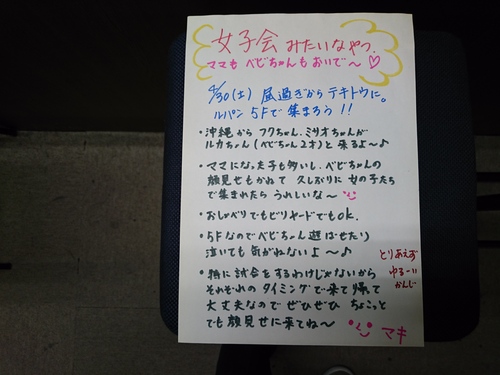 女子会 みたいなやつ.
ママも ベビちゃんも おいで〜♡
4/30(土) 昼過ぎから テキトウに。
ルパン 5Fで 集まろう!!
・沖縄から フクちゃん. ミリオちゃんが
ルカちゃん(ベビちゃん2才)と 来るよ〜♪
・ママになった子も多いし. ベビちゃんの
顔見せもかねて 久しぶりに 女の子たち
で集まれたら うれしいな〜
・おしゃべりでもビリヤードでもok.
・5Fなのでベビちゃん 遊ばせたり
泣いても 気がねないよ 〜♪
・特に試合をするわけじゃないから
それぞれの タイミングで来て 帰って
大丈夫なので ぜひぜひ ちょこっと
でも 顔見せに来てね〜
とりあえず
ゆるーい
かんじ
マキ